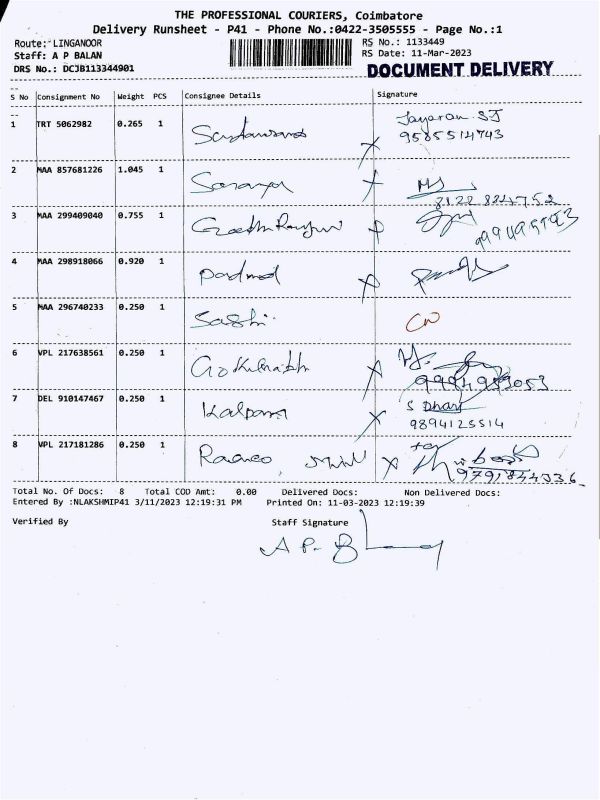 THE PROFESSIONAL COURIERS, Coimbatore
Delivery Runsheet - P41 - Phone No.:0422-3505555 - Page No.:1
Route: LINGANOOR
RS No.: 1133449
Staff: A P BALAN
RS Date: 11-Mar-2023
DRS No.: DCJB113344901
DOCUMENT DELIVERY
S No Consignment No Weight PCS Consignee Details Signature
1 TRT 5062982 0.265 1 Jayaran SJ
9585514743
2 MAA 857681226 1.045 1 Saranya
3 MAA 299409040 0.755 1
4 MAA 298918066 0.920 1 Padmad
5 MAA 296740233 0.250 1 Sashi
6 VPL 217638561 0.250 1
7 DEL 910147467 0.250 1 Kalpana S Dhan
9894125514
8 VPL 217181286 0.250 1
9791844336
Total No. Of Docs: 8 Total COD Amt: 0.00 Delivered Docs: Non Delivered Docs:
Entered By :NLAKSHMIP41 3/11/2023 12:19:31 PM Printed On: 11-03-2023 12:19:39
Verified By Staff Signature
A P. B